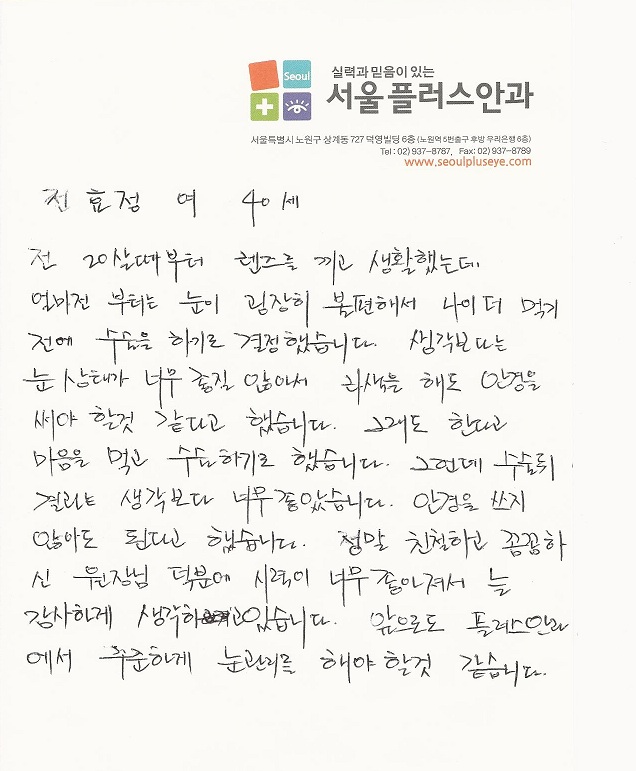 Seoul
실력과 믿음이 있는
서울플러스안과
서울특별시 노원구 상계동 727 덕영빌딩 6층 (노원역 5번출구 후방 우리은행 6층)
Tel : 02) 937-8787,  Fax: 02) 937-8789
www.seoulpluseye.com
진효정 여 40세
전 20살때부터 렌즈를 끼고 생활했는데
얼마전 부터는 눈이 굉장히 불편해서 나이 더 먹기
전에 수술을 하기로 결정했습니다. 생각보다는
눈 상태가 너무 좋질 않아서 라섹을 해도 안경을
써야 할것 같다고 했습니다. 그래도 한다고
마음을 먹고 수술하기로 했습니다. 그런데 수술뒤
결과는 생각보다 너무 좋았습니다. 안경을 쓰지
않아도 된다고 했습니다. 정말 친철하고 꼼꼼하
신 원장님 덕분에 시력이 너무 좋아져서 늘
감사하게 생각하고 있습니다. 앞으로도 플러스안과
에서 꾸준하게 눈관리를 해야 할것 같습니다.